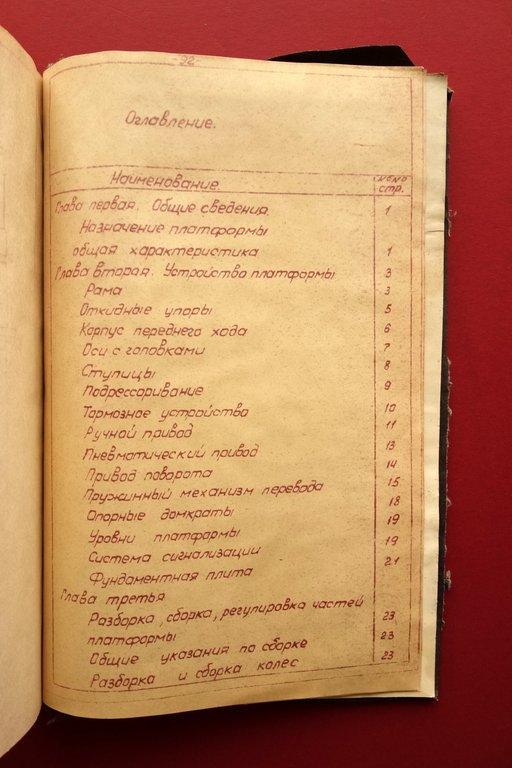 -92-
Оглавление.
Наименование №№ стр.
Глава первая. Общие сведения. 1
Назначение платформы
общая характеристика 1
Глава вторая. Устройство платформы 3
Рама 3
Откидные упоры 5
Корпус переднего хода 6
Оси с головками 7
Ступицы 8
Подрессоривание 9
Тормозное устройство 10
Ручной привод 11
Пневматический привод 13
Привод поворота 14
Пружинный механизм перевода 15
Опорные домкраты 18
Уровни платформы 19
Система сигнализации 19
Фундаментная плита 21
Глава третья
Разборка, сборка, регулировка частей 23
платформы 23
Общие указания по сборке 23
Разборка и сборка колес